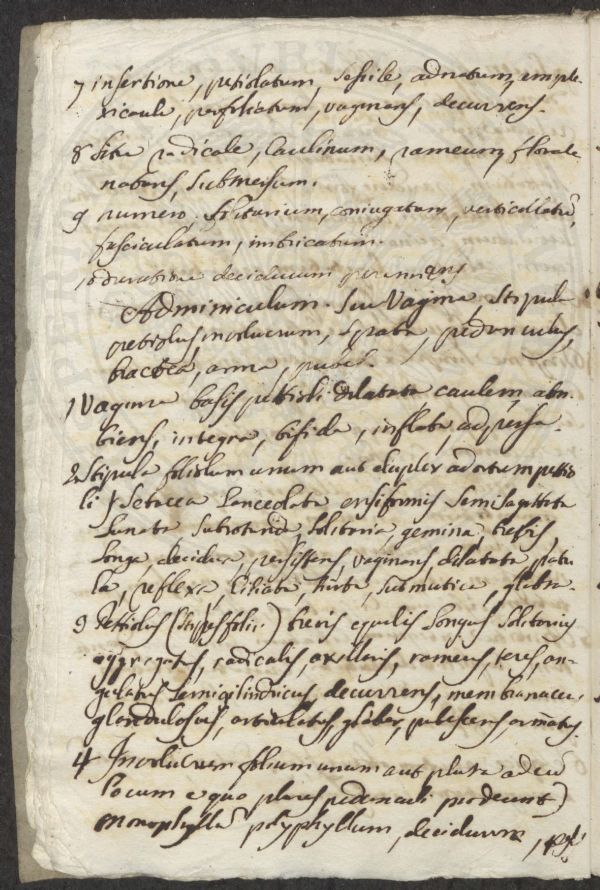 7 insertione, petiolatum, sessile, adnatum, ample-
xicaule, perfoliatum, vaginans, decurrens.
8 situ radicale, caulinum, rameum, florale
natans, submersum.
9 numero. solitarium, conjugatum, verticillatū,
fasciculatum, imbricatum.
10 duratione deciduum perennans
Adminiculum. sive Vagina, stipula
petiolus involucrum, spata, pedunculus,
bractea, arma, pubes.
1 Vagina basis petioli dilatata caulem am-
biens, integra, bifida, inflata, adpersa.
2 Stipula foliolum unum aut duplex adortum petio
li) setacea lanceolata ensiformis semisagittata
lunata subrotunda solitaria, gemina, brevis
longa, decidua, persistens, vaginans dilatata, patu
la, reflexa, ciliata, hirta, submutica, glabra.
3 Pettiolus (stypes folii.) brevis equalis longus solitarius
aggregatus, radicalis, axillaris, rameus, teres, an-
gulatus semicilindricus, decurrens, membranaceus,
glandulosus, articulatus, glaber, pubescens armatus.
4 Involucrum folium unum aut plura ad eū
locum e quo plures pedunculi prodeunt)
monophyllū polyphyllum, deciduum,